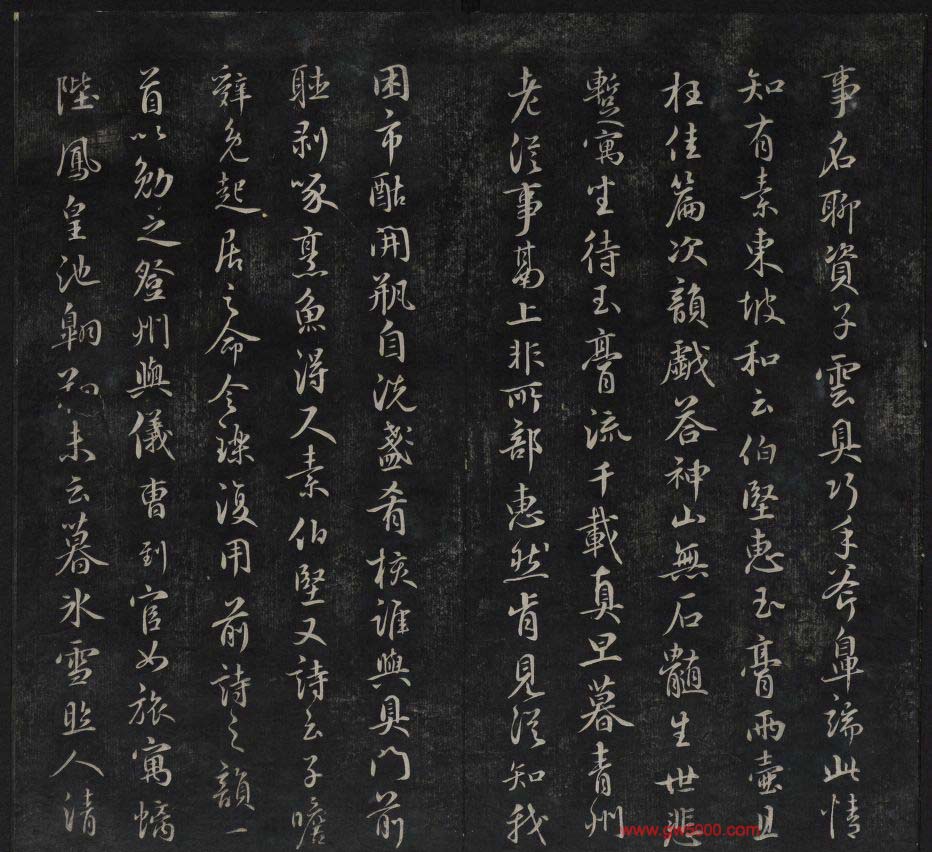 事名聊資子雲具巧手斧鼻端此情
知有素東坡和云伯堅惠玉膏兩壺且
枉佳篇次韻戲答神山無石髓生世悲
暫寓坐待玉膏流千載真旦暮青州
老從事鬲上非所部惠然肯見從知我
困市酤開瓶自洗盞肴核誰與具門前
聽剥啄烹魚得尺素伯堅又詩云子瞻
辭免起居之命令謙復用前詩之韻一
首以勉之登州與儀曹到官如旅寓螭
陛鳳皇池翱翔未云暮冰雪照人清
www.gw5000.com